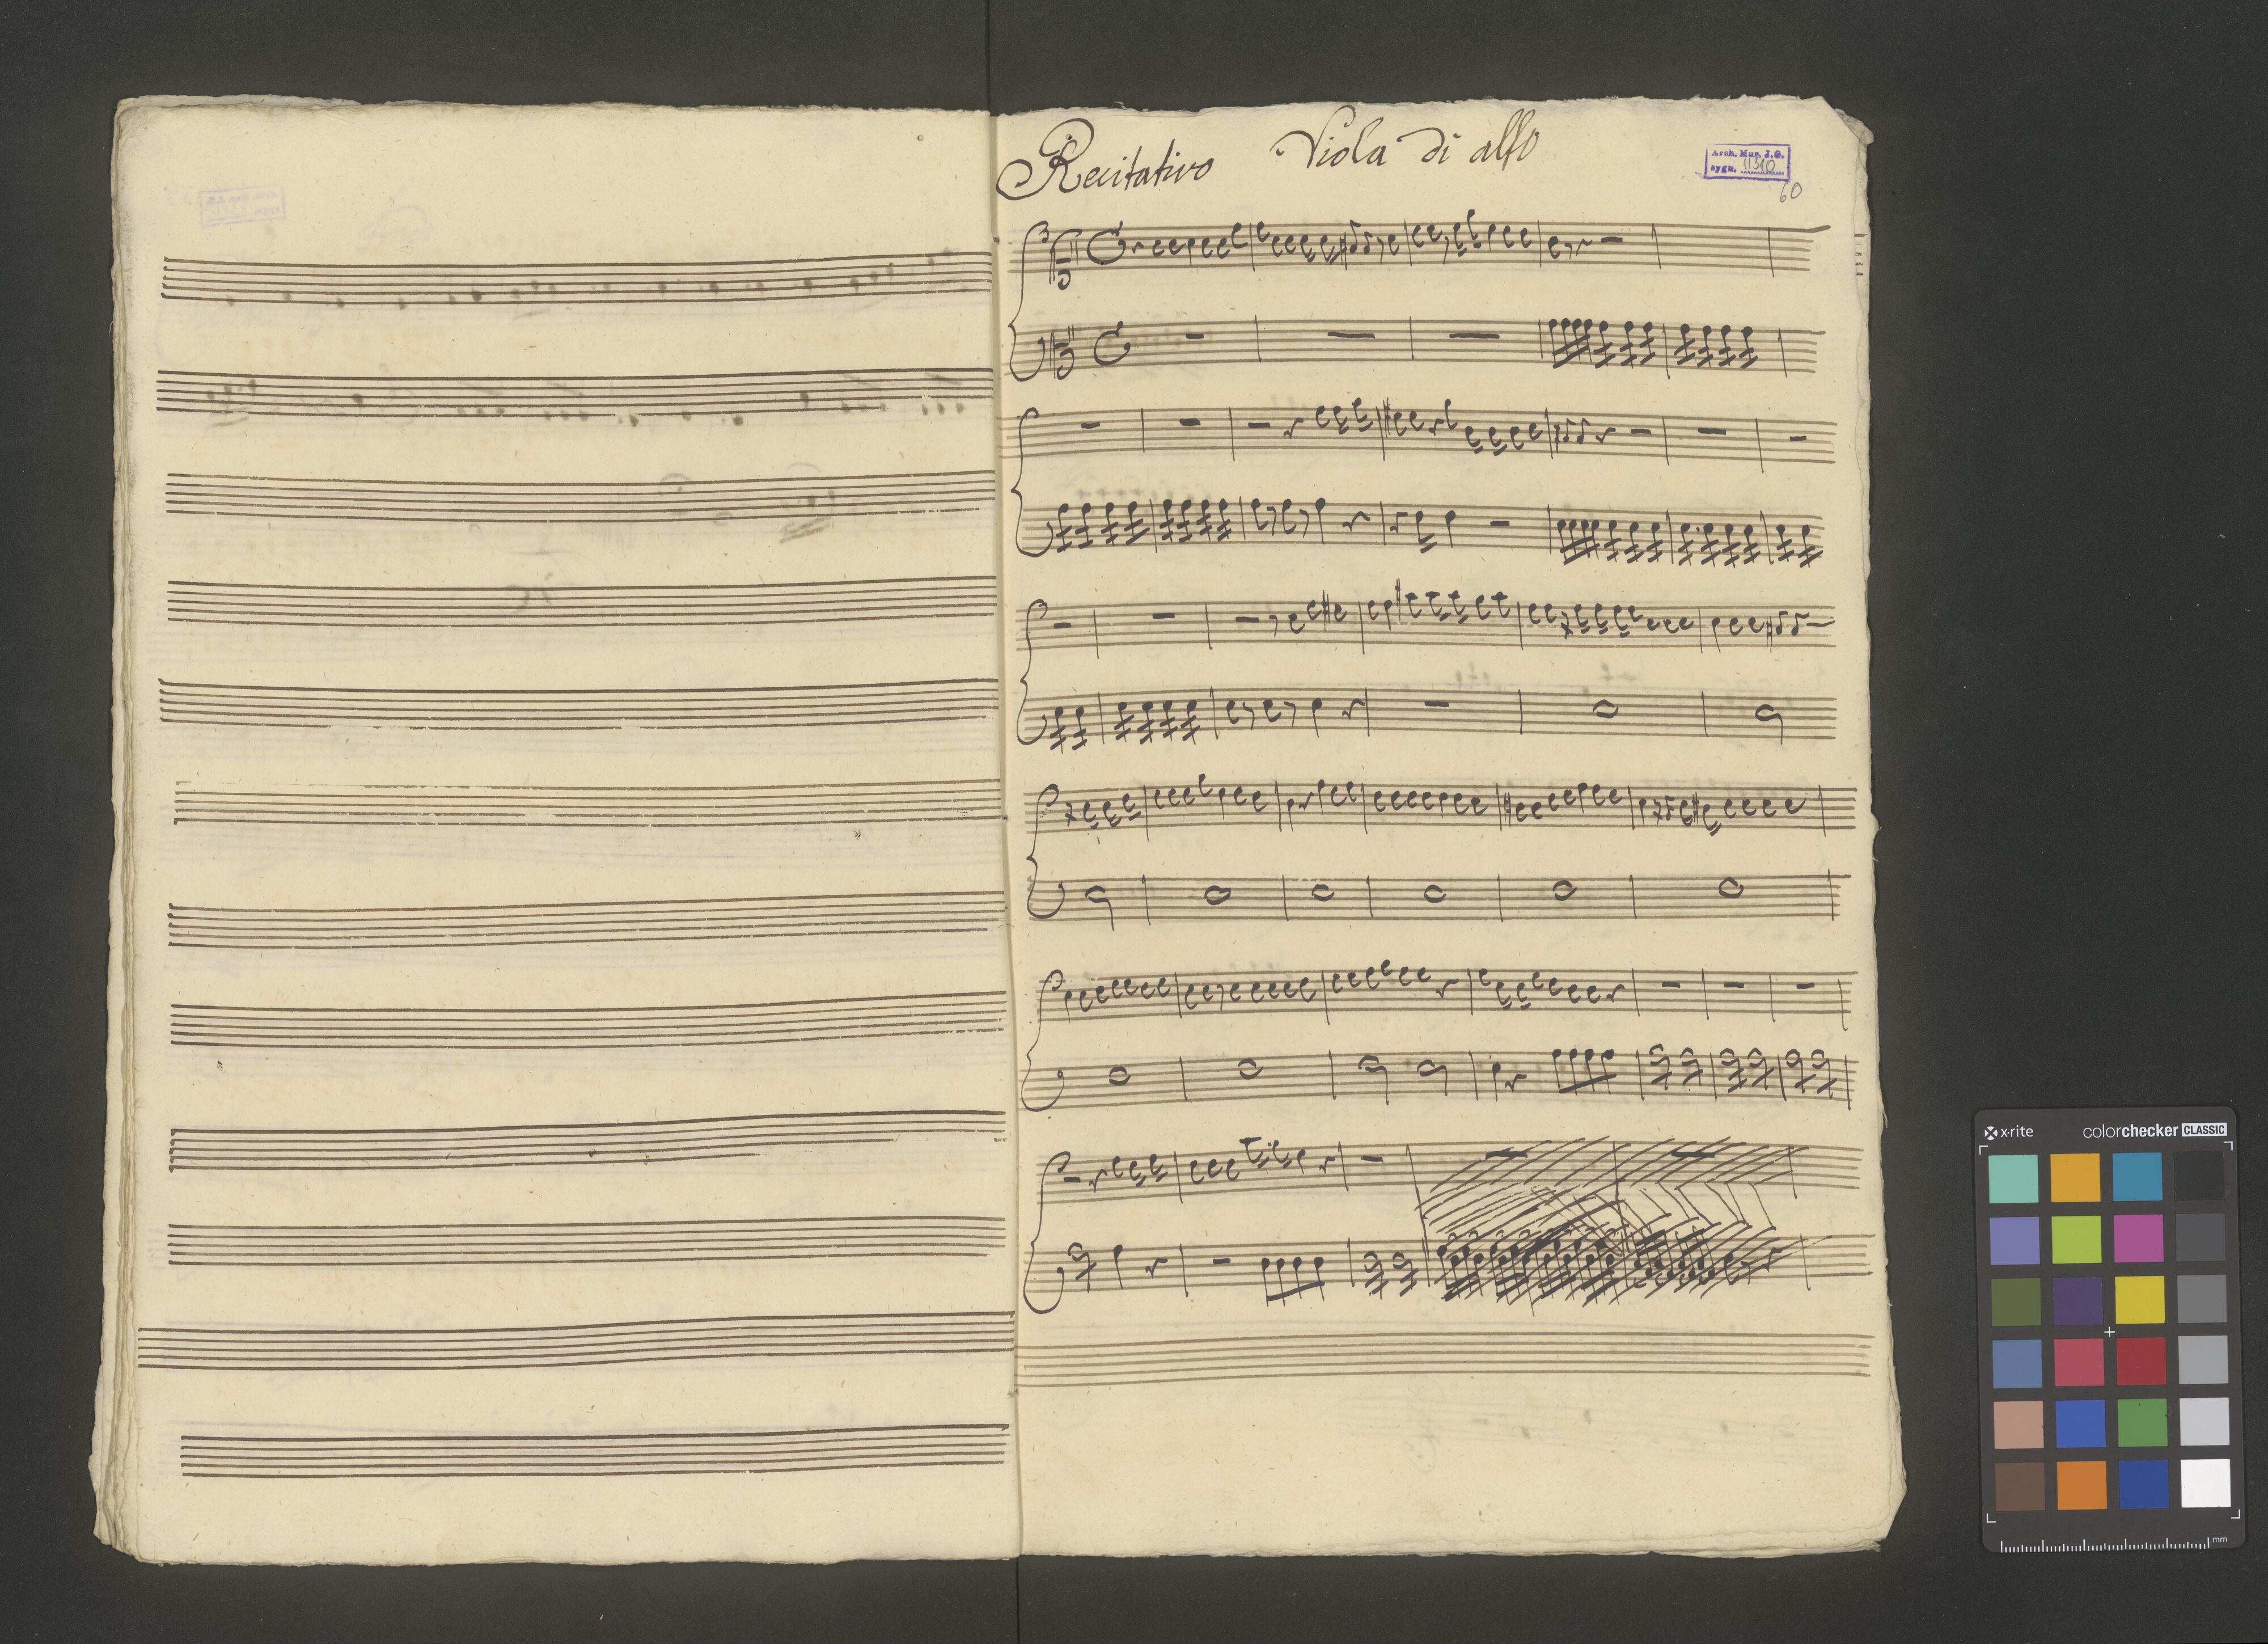 Recitativo Viola di alto
Arch. Muz. J.G.
sygn. 11310
60
x-rite colorchecker CLASSIC
mm